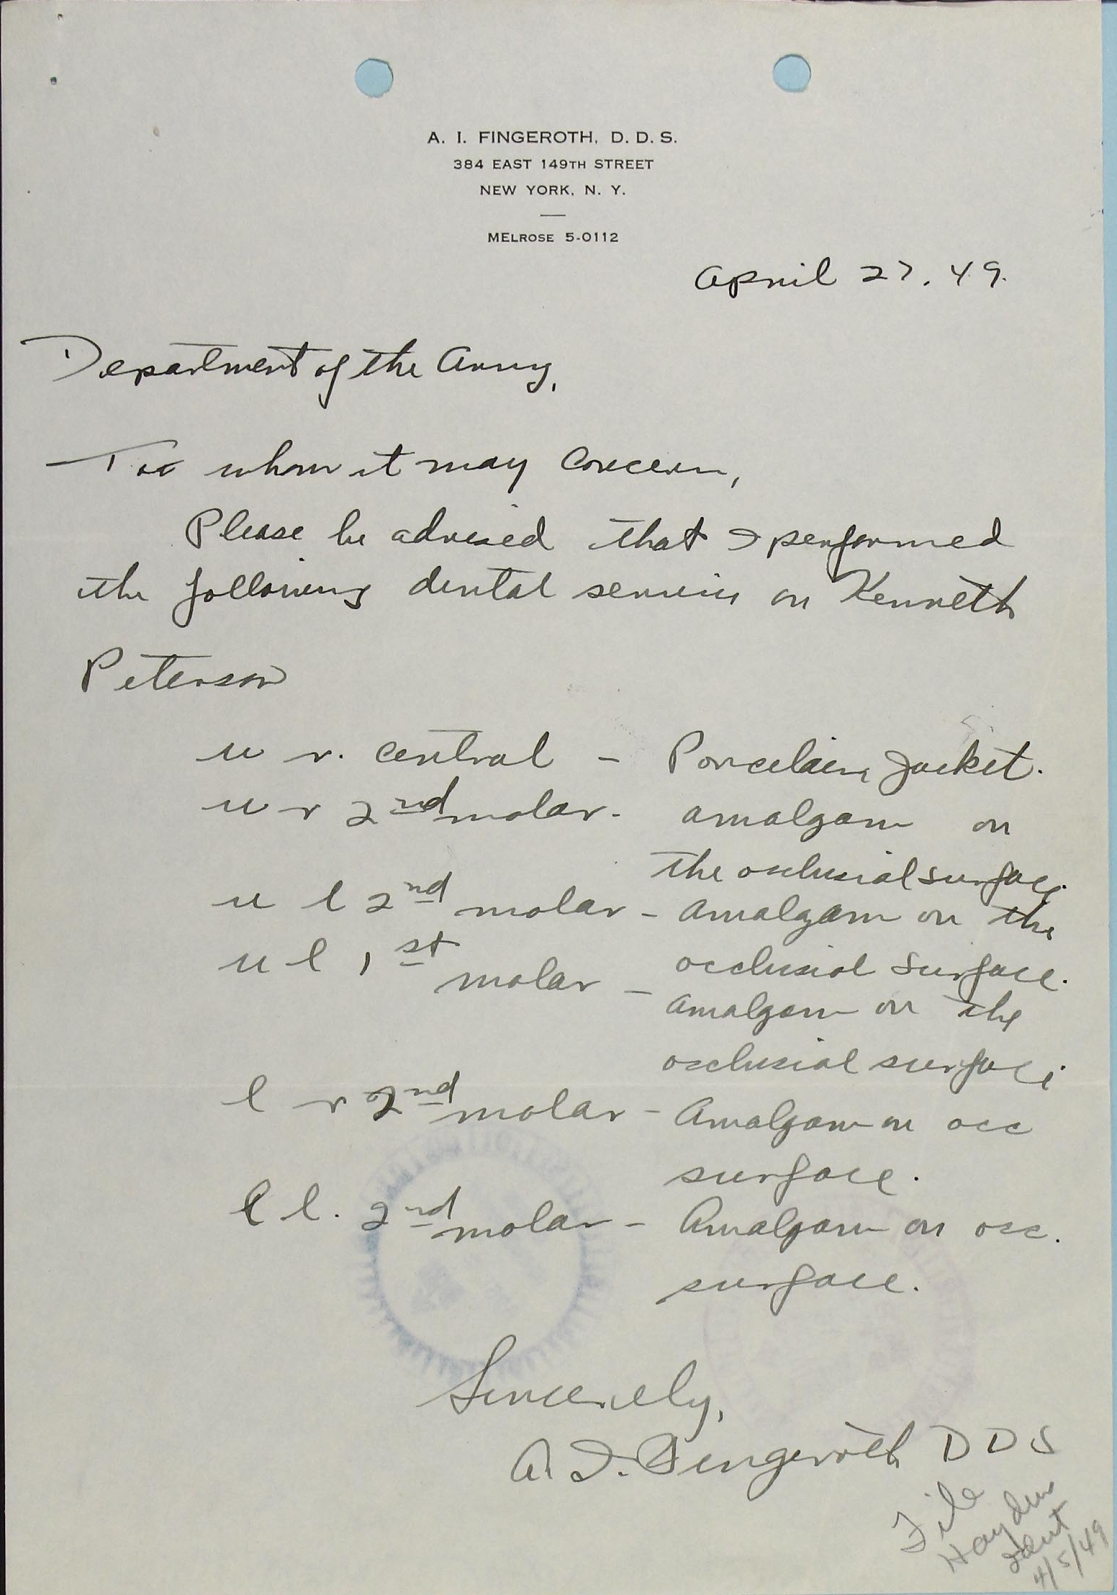 A. I. FINGEROTH, D. D. S.
384 EAST 149TH STREET
NEW YORK, N. Y.
MELROSE 5-0112
April 27. 49.
Department of the Army,
Too whom it may concern,
Please be advised that I performed
the following dental services on Kenneth
Peterson
u r. central - Porcelain Jacket.
u r 2nd molar. amalgam on
the occlusial surface.
u l 2nd molar - amalgam on the
occlusial surface.
u l 1st molar - amalgam on the
occlusial surface
l r 2nd molar - Amalgam on occ
surface.
l l. 2nd molar - Amalgam on occ.
surface.
Sincerely,
A. I. Fingeroth DDS
File
Hayden
Ident
4/5/49